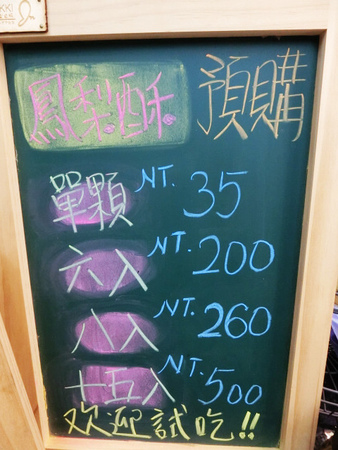 鳳梨酥 預購
單顆 NT. 35
六入 NT. 200
八入 NT. 260
十五入 NT. 500
欢迎試吃!!